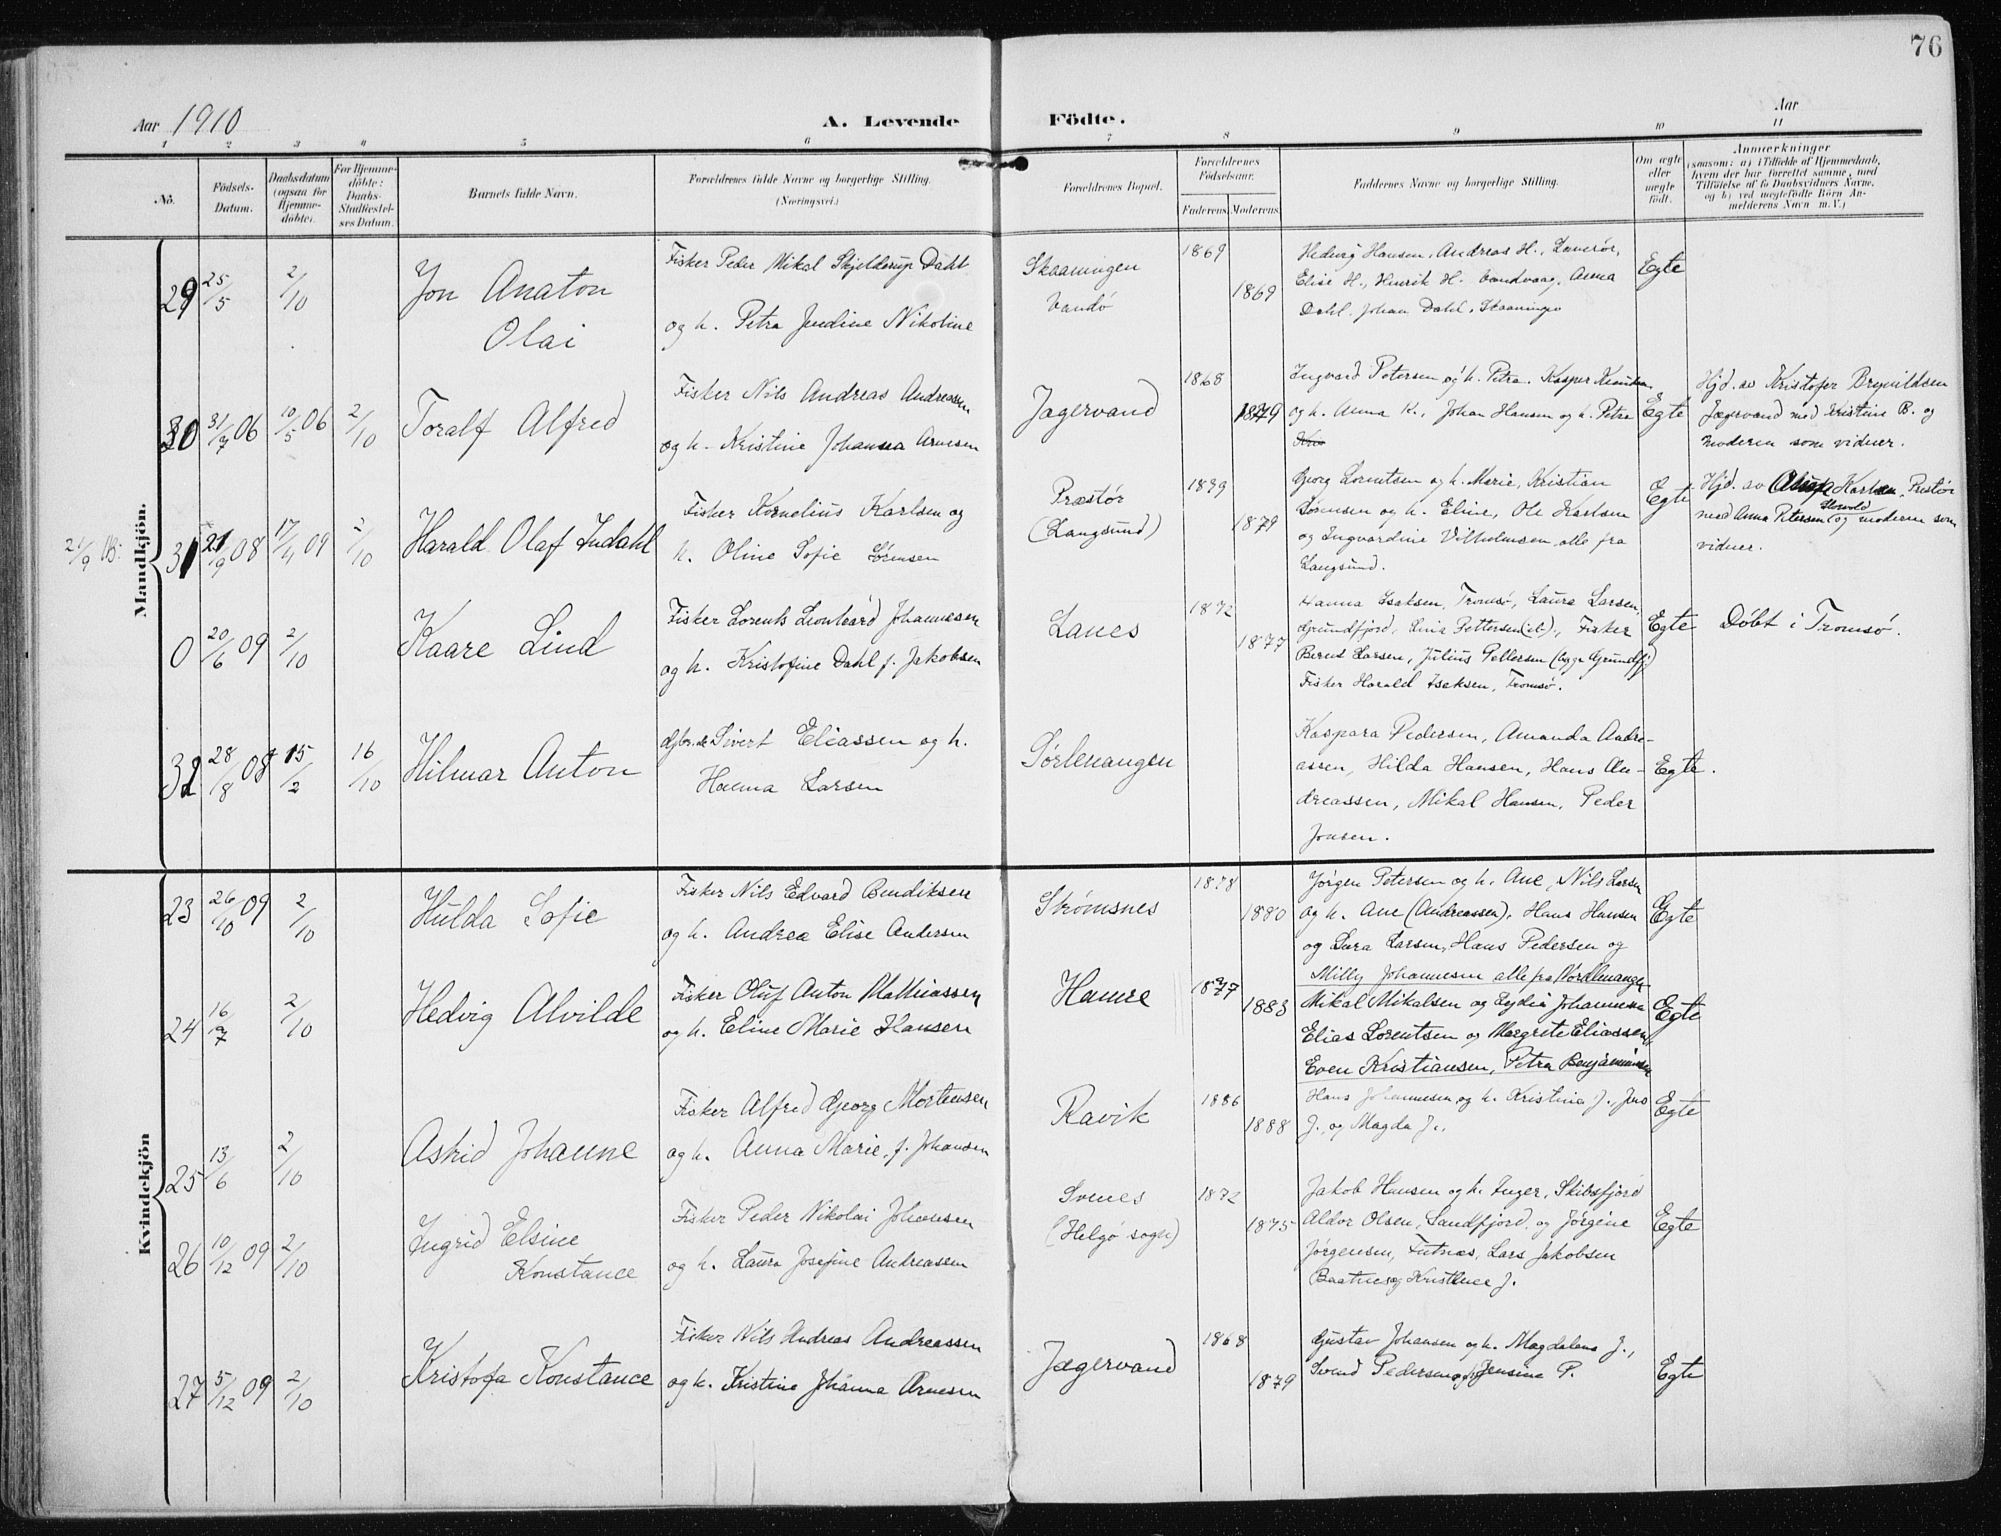 76
Aar 1910 A. Levende Födte. Aar
1 2 3 4 5 6 7 8 9 10 11
No. Födsels-Datum. Daabsdatum (ogsaa for Hjemme-döbte). For Hjemme-döbte: Daabs-Stadfæstel-ses Datum. Barnets fulde Navn. Forældrenes fulde Navne og borgerlige Stilling. (Næringsvei.) Forældrenes Bopæl. Forældrenes Födselsaar. Faderens. Moderens. Faddernes Navne og borgerlige Stilling. Om ægte eller uægte födt. Anmærkninger
(saasom: a) i Tilfælde af Hjemmedaab, hvem der har forrettet samme, med Tilföielse af to Daabsvidners Navne, og b) ved uægtefödte Börn An-melderens Navn m. V.)
Mandkjön.
29 25/5 2/10 Jon Anaton
Olai
Fisker Peder Mikal Skjelderup Dahl
og h. Petra Jendine Nikoline
Skaaningen
Vandø
1869
1869
Hedvig Hansen, Andreas H., Lanesør,
Elise H., Henrik H. Vandvaag, Anna
Dahl. Johan Dahl, Skaaningen
Egte
30 31/7 06 10/5 06 2/10 Toralf Alfred
Fisker Nils Andreas Andreassen
og h. Kristine Johanna Arnesen
Jægervand
1868
1879
Ingvard Petersen og h. Petra. Kasper Knutsen
og h. Anna K., Johan Hansen og h. Petra
Egte
Hjd. av Kristofer Brynildsen
Jægervand med Kristine B. og
moderen som vidner.
21/9
31 21/9 08 17/4 09 2/10 Harald Olaf Indahl
Fisker Kornelius Karlsen og
h. Oline Sofie Sørensen
Præstør
(Langsund)
1879
1879
Georg Lorentsen og h. Marie, Kristian
Sørensen og h. Eline, Ole Karlsen
og Ingvardine Vilhelmsen alle fra
Langsund.
Egte
Hjd. av Karlsen, Prestør
med Anna Petersen og moderen som
vidner.
0 20/6 09 2/10 Kaare Lind
Fisker Lorents Leonhard Johannesen
og h. Kristofine Dahl f. Jakobsen
Lanes
1872
1877
Hanna Isaksen, Tromsø, Laura Larsen,
Grundfjord, Lina Pettersen (ib)., Fisker
Bernt Larsen, Julius Pettersen (begge Grundfj)
Fisker Harald Isaksen, Tromsø.
Egte
Døbt i Tromsø.
32 28/8 08 15/2 16/10 Hilmar Anton
Gbr. de Sivert Eliassen og h.
Hanna Larsen
Sørlenangen
Kaspara Pedersen, Amanda Andre-
assen, Hilda Hansen, Hans An-
dreassen, Mikal Hansen, Peder
Jonsen.
Egte.
Kvindekjön
23 26/10 09 2/10 Hulda Sofie
Fisker Nils Edvard Bendiksen
og h. Andrea Elise Andersen
Strømsnes
1878
1880
Jørgen Petersen og h. Ane, Nils Larsen
og h. Ane (Andreassen), Hans Hansen
og Sara Larsen, Hans Pedersen og
Milly Johannesen alle fra Nordlenangen
Egte
24 16/7 2/10 Hedvig Alvilde
Fisker Oluf Anton Mathiassen
og h. Eline Marie Hansen
Hamre
1877
1883
Mikal Mikalsen og Lydia Johannesen
Elias Lorentsen og Margrete Eliassen,
Even Kristiansen, Petra Benjaminsen
Egte
25 13/6 2/10 Astrid Johanne
Fisker Alfred Georg Mortensen
og h. Anna Marie, f. Johansen
Ravik
1886
1888
Hans Johannesen og h. Kristine J., Jens
J., og Magda J..
Egte
26 10/12 09 2/10 Ingrid Elsine
Konstance
Fisker Peder Nikolai Johansen
og h. Laura Josefine Andreassen
Svenes
(Helgø sogn)
1872
1875
Jakob Hansen og h. Inger, Skibsfjord
Aldor Olsen, Sandfjord, og Jørgine
Jørgensen, Futnæs, Lars Jakobsen
Baatnes og Kristine J.
Egte
27 5/12 09 2/10 Kristofa Konstance
Fisker Nils Andreas Andreassen
og h. Kristine Johanna Arnesen
Jægervand
1868
1879
Gustav Johansen og h. Magdalena J.,
Svend Pedersen og h. Jensine P.
Egte